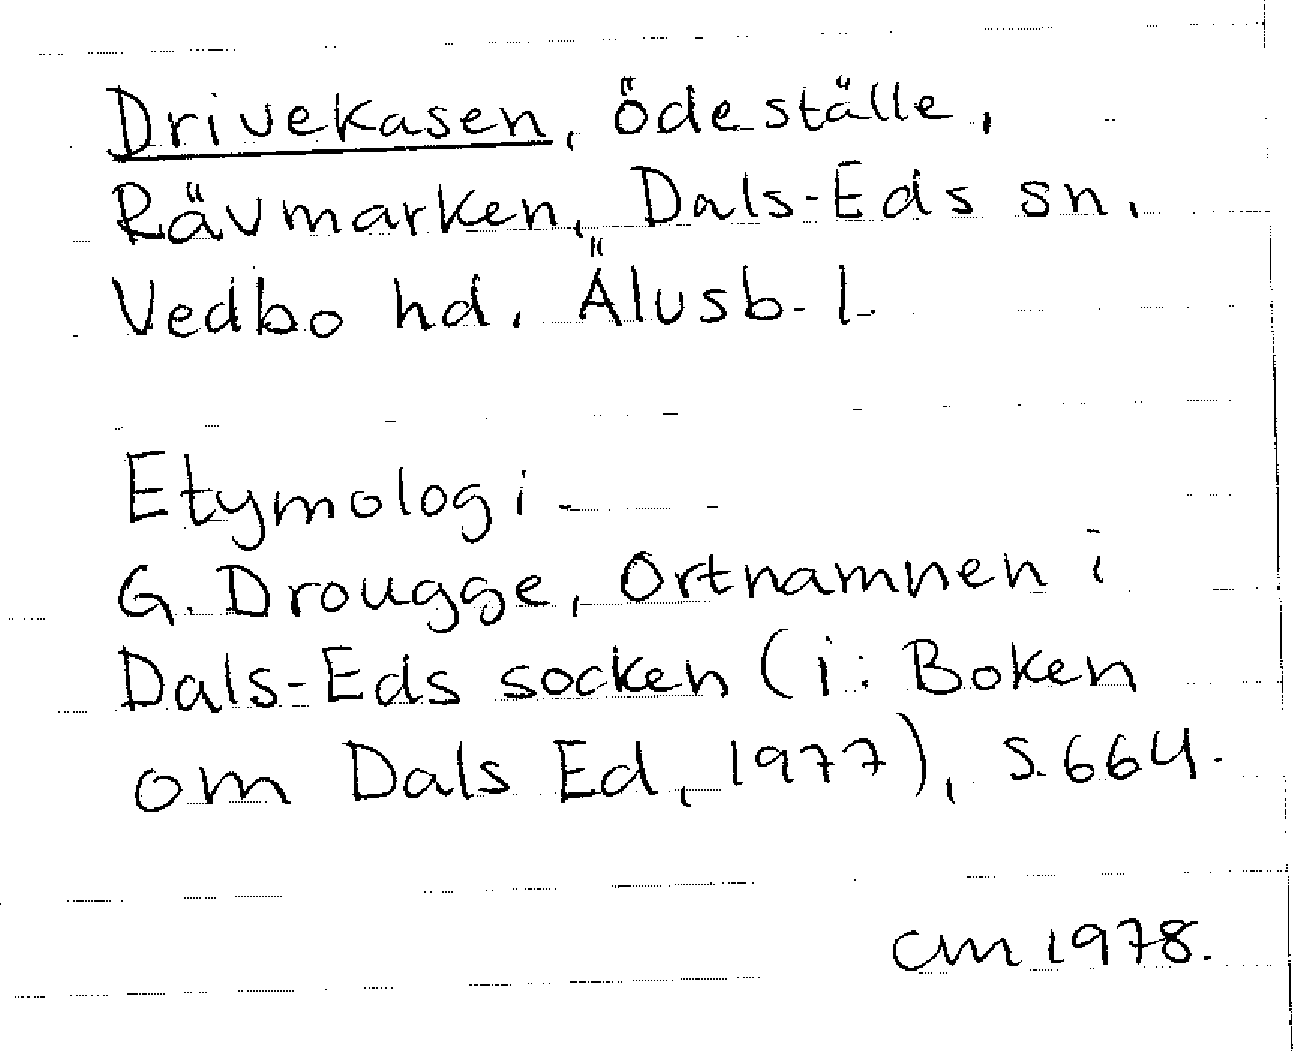 Drivekasen, ödeställe,
Rävmarken, Dals-Eds sn.
Vedbo hd. Älvsb. l.
Etymologi
G. Drougge, Ortnamnen i
Dals-Eds socken (i: Boken
om Dals Ed, 1977), s. 664.
CM 1978.